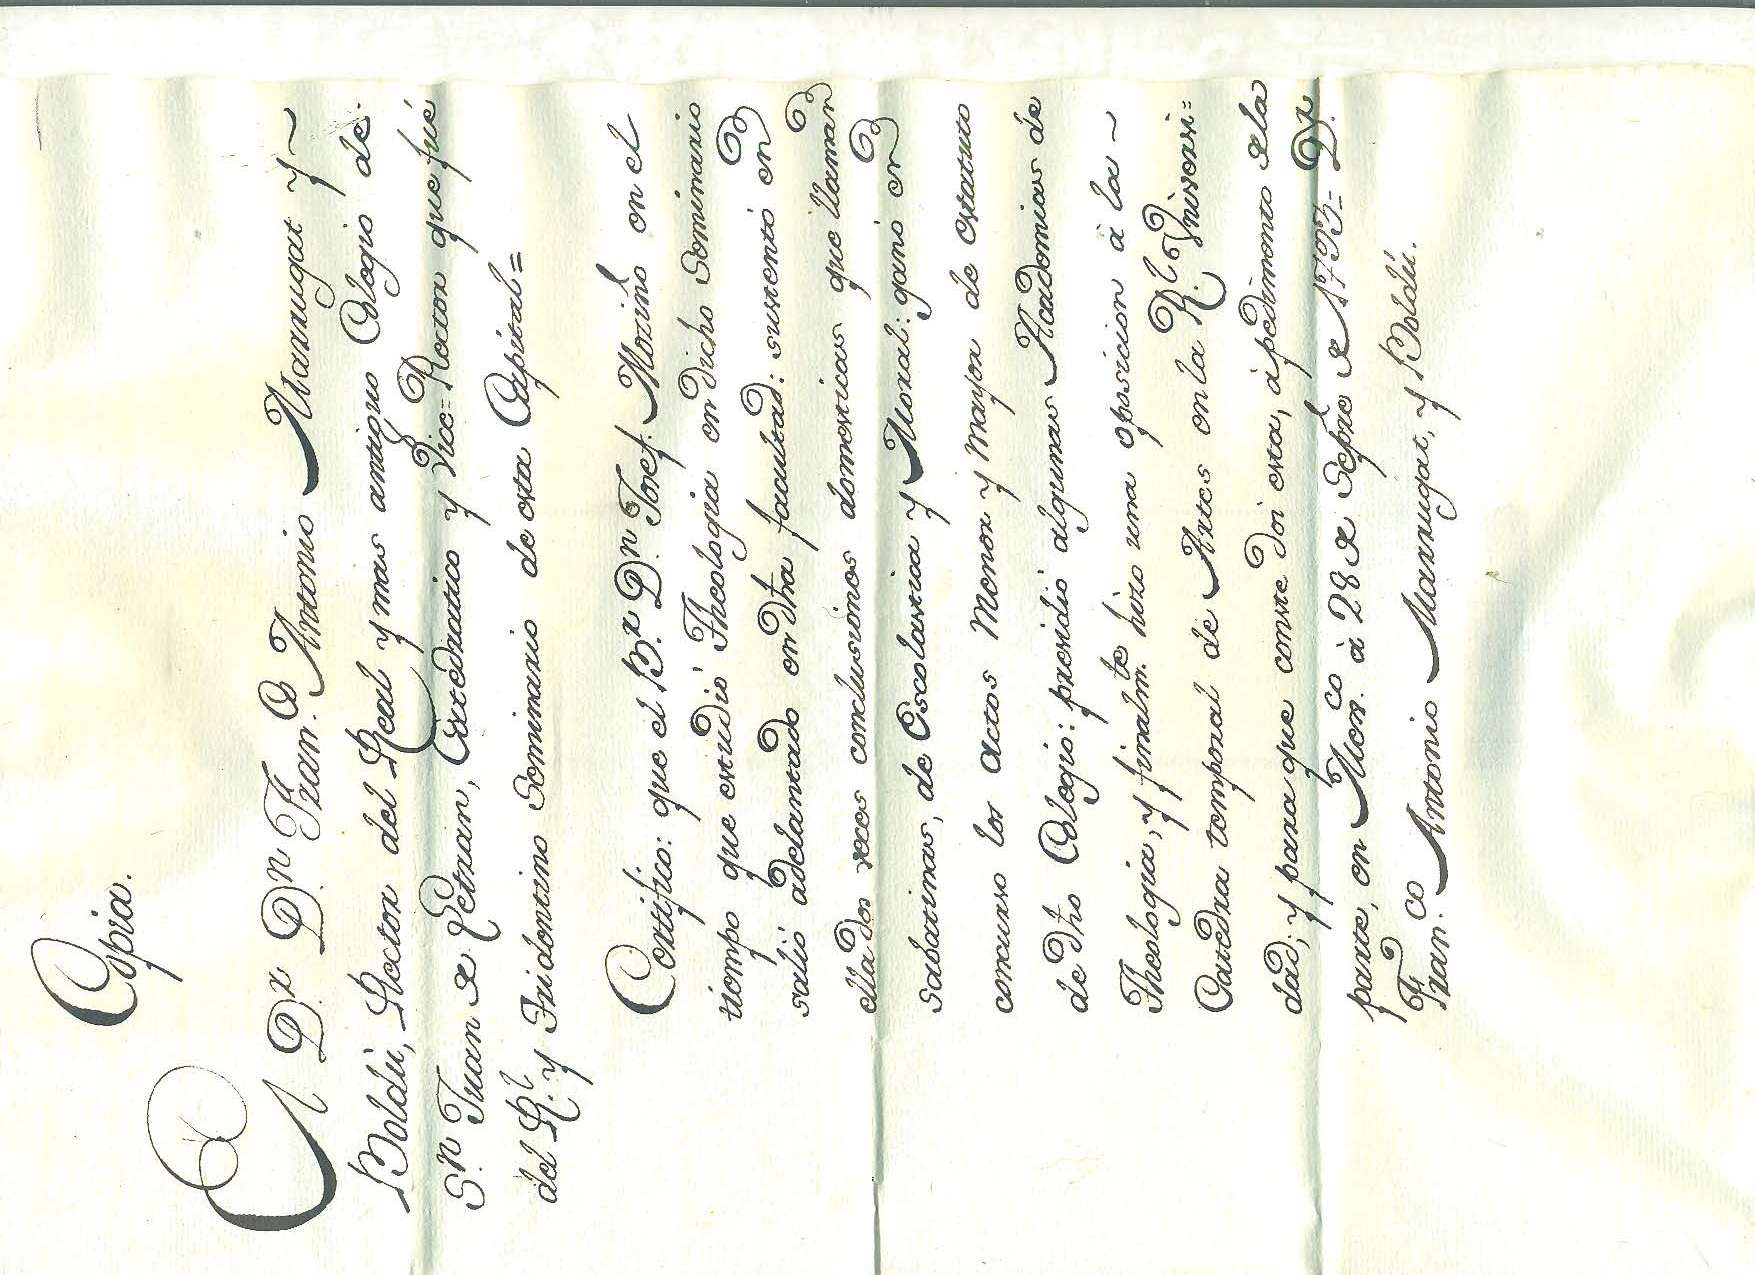 Copia.
El D.r D.n Fran.co Antonio Marrugat y ~
Boldú, Rector del Real y mas antiguo Colegio de.
S.n Juan de Letran, Catedratico y Vice=Rector que fué
del R.l y Tridentino Seminario de esta Capital=
Certifico: que el B.r D.n Josef. Moziño en el
tiempo que estudió Theologia en dicho Seminario
salió adelantado en dtra facultad: sustentó en
ella dos veces conclusiones domesticas que llaman
sabatinas, de Escolastica y Moral: ganó en
concurso los actos Menor y Mayor de estatuto
de dtro Colegio: presidió algunas Academias de
Theologia, y finalm.te hizo una oposicion à la ~
Catedra temporal de Artes en la R.l Universi=
dad; y para que conste doi esta, á pedimento de la
parte, en Mex.co à 28 de Sepre de 1793= D.r
Fran.co Antonio Marrugat, y Boldú.